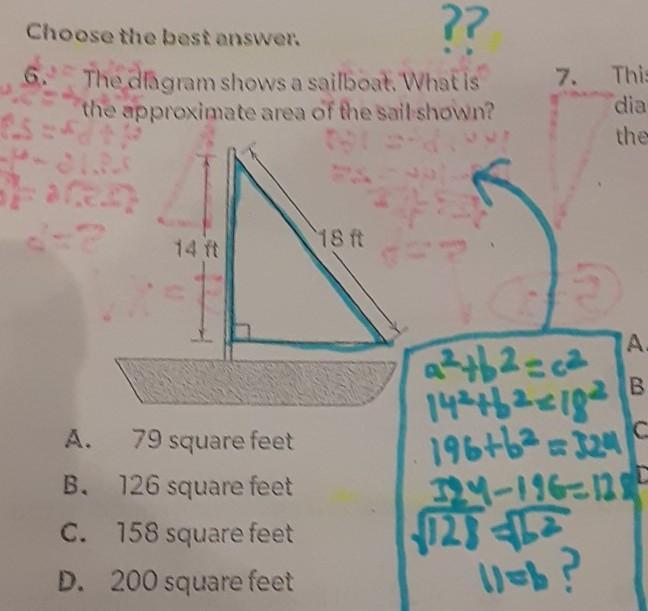 Choose the best answer.
??
6. The diagram shows a sailboat. What is
the approximate area of the sail shown?
7. This
dia
the
14 ft
18 ft
A. 79 square feet
B. 126 square feet
C. 158 square feet
D. 200 square feet
a²+b²=c²
14²+b²=18²
196+b²=324
324-196=128
√128=√b²
11=b?
A.
B
C
D